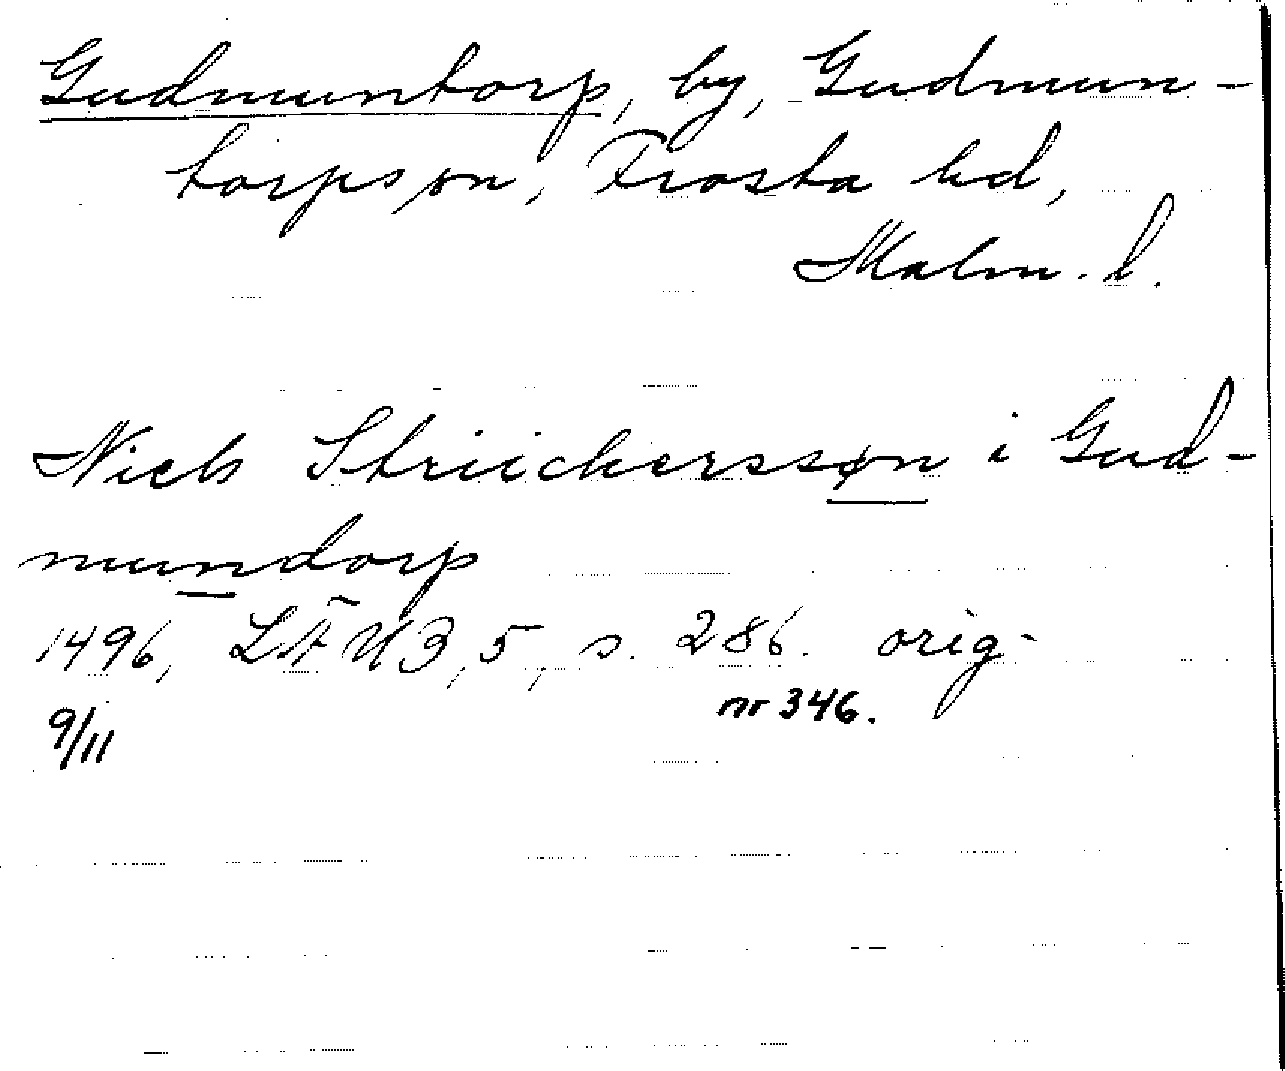 Gudmuntorp, by, Gudmun-
torps sn, Frosta hd,
Malm. l.
Niels Striickerssøn i Gud-
mundorp
1496, LÄUB, 5, s. 286. orig.
nr 346.
9/11